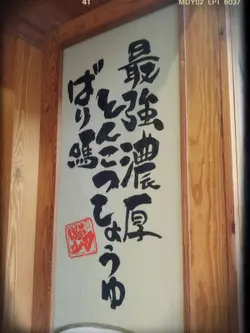 41
MDY02 EPT 6037
最強濃厚
とんこつしょうゆ
ばり馬